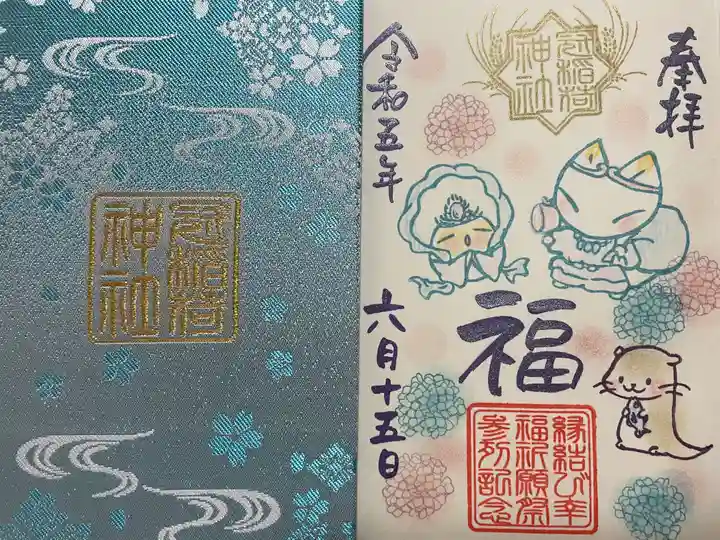 冠稲荷
神社
冠稲荷
神社
奉拝
令和五年
六月十五日
福
縁結び幸
福祈願祭
参列記念